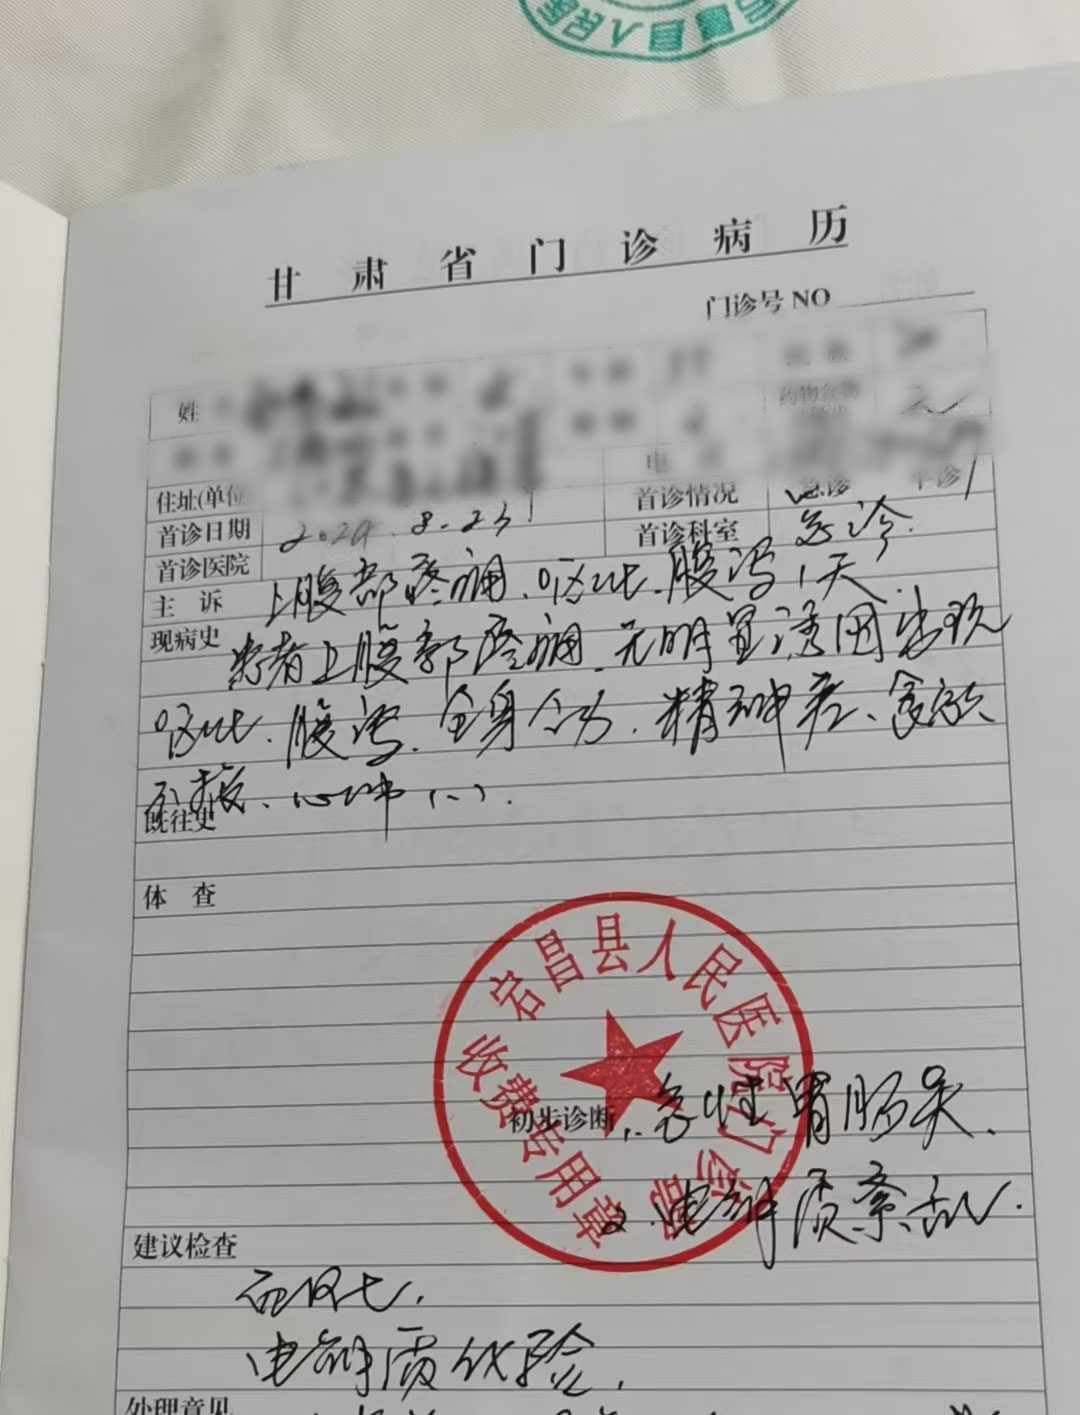 宕昌县人民医
甘肃省门诊病历
门诊号 NO
姓
药物食物
住址(单位
电
首诊日期 2024.8.23
首诊情况 急诊 平诊
首诊医院
首诊科室 急诊
主 诉 上腹部疼痛、呕吐、腹泻1天
现病史 患者上腹部疼痛、无明显诱因出现
呕吐、腹泻、全身乏力、精神差、食欲
不振、心肺(-).
既往史
体 查
宕昌县人民医院门诊部
收费专用章
初步诊断 1.急性胃肠炎.
2.电解质紊乱.
建议检查
电解质化验.
处理意见